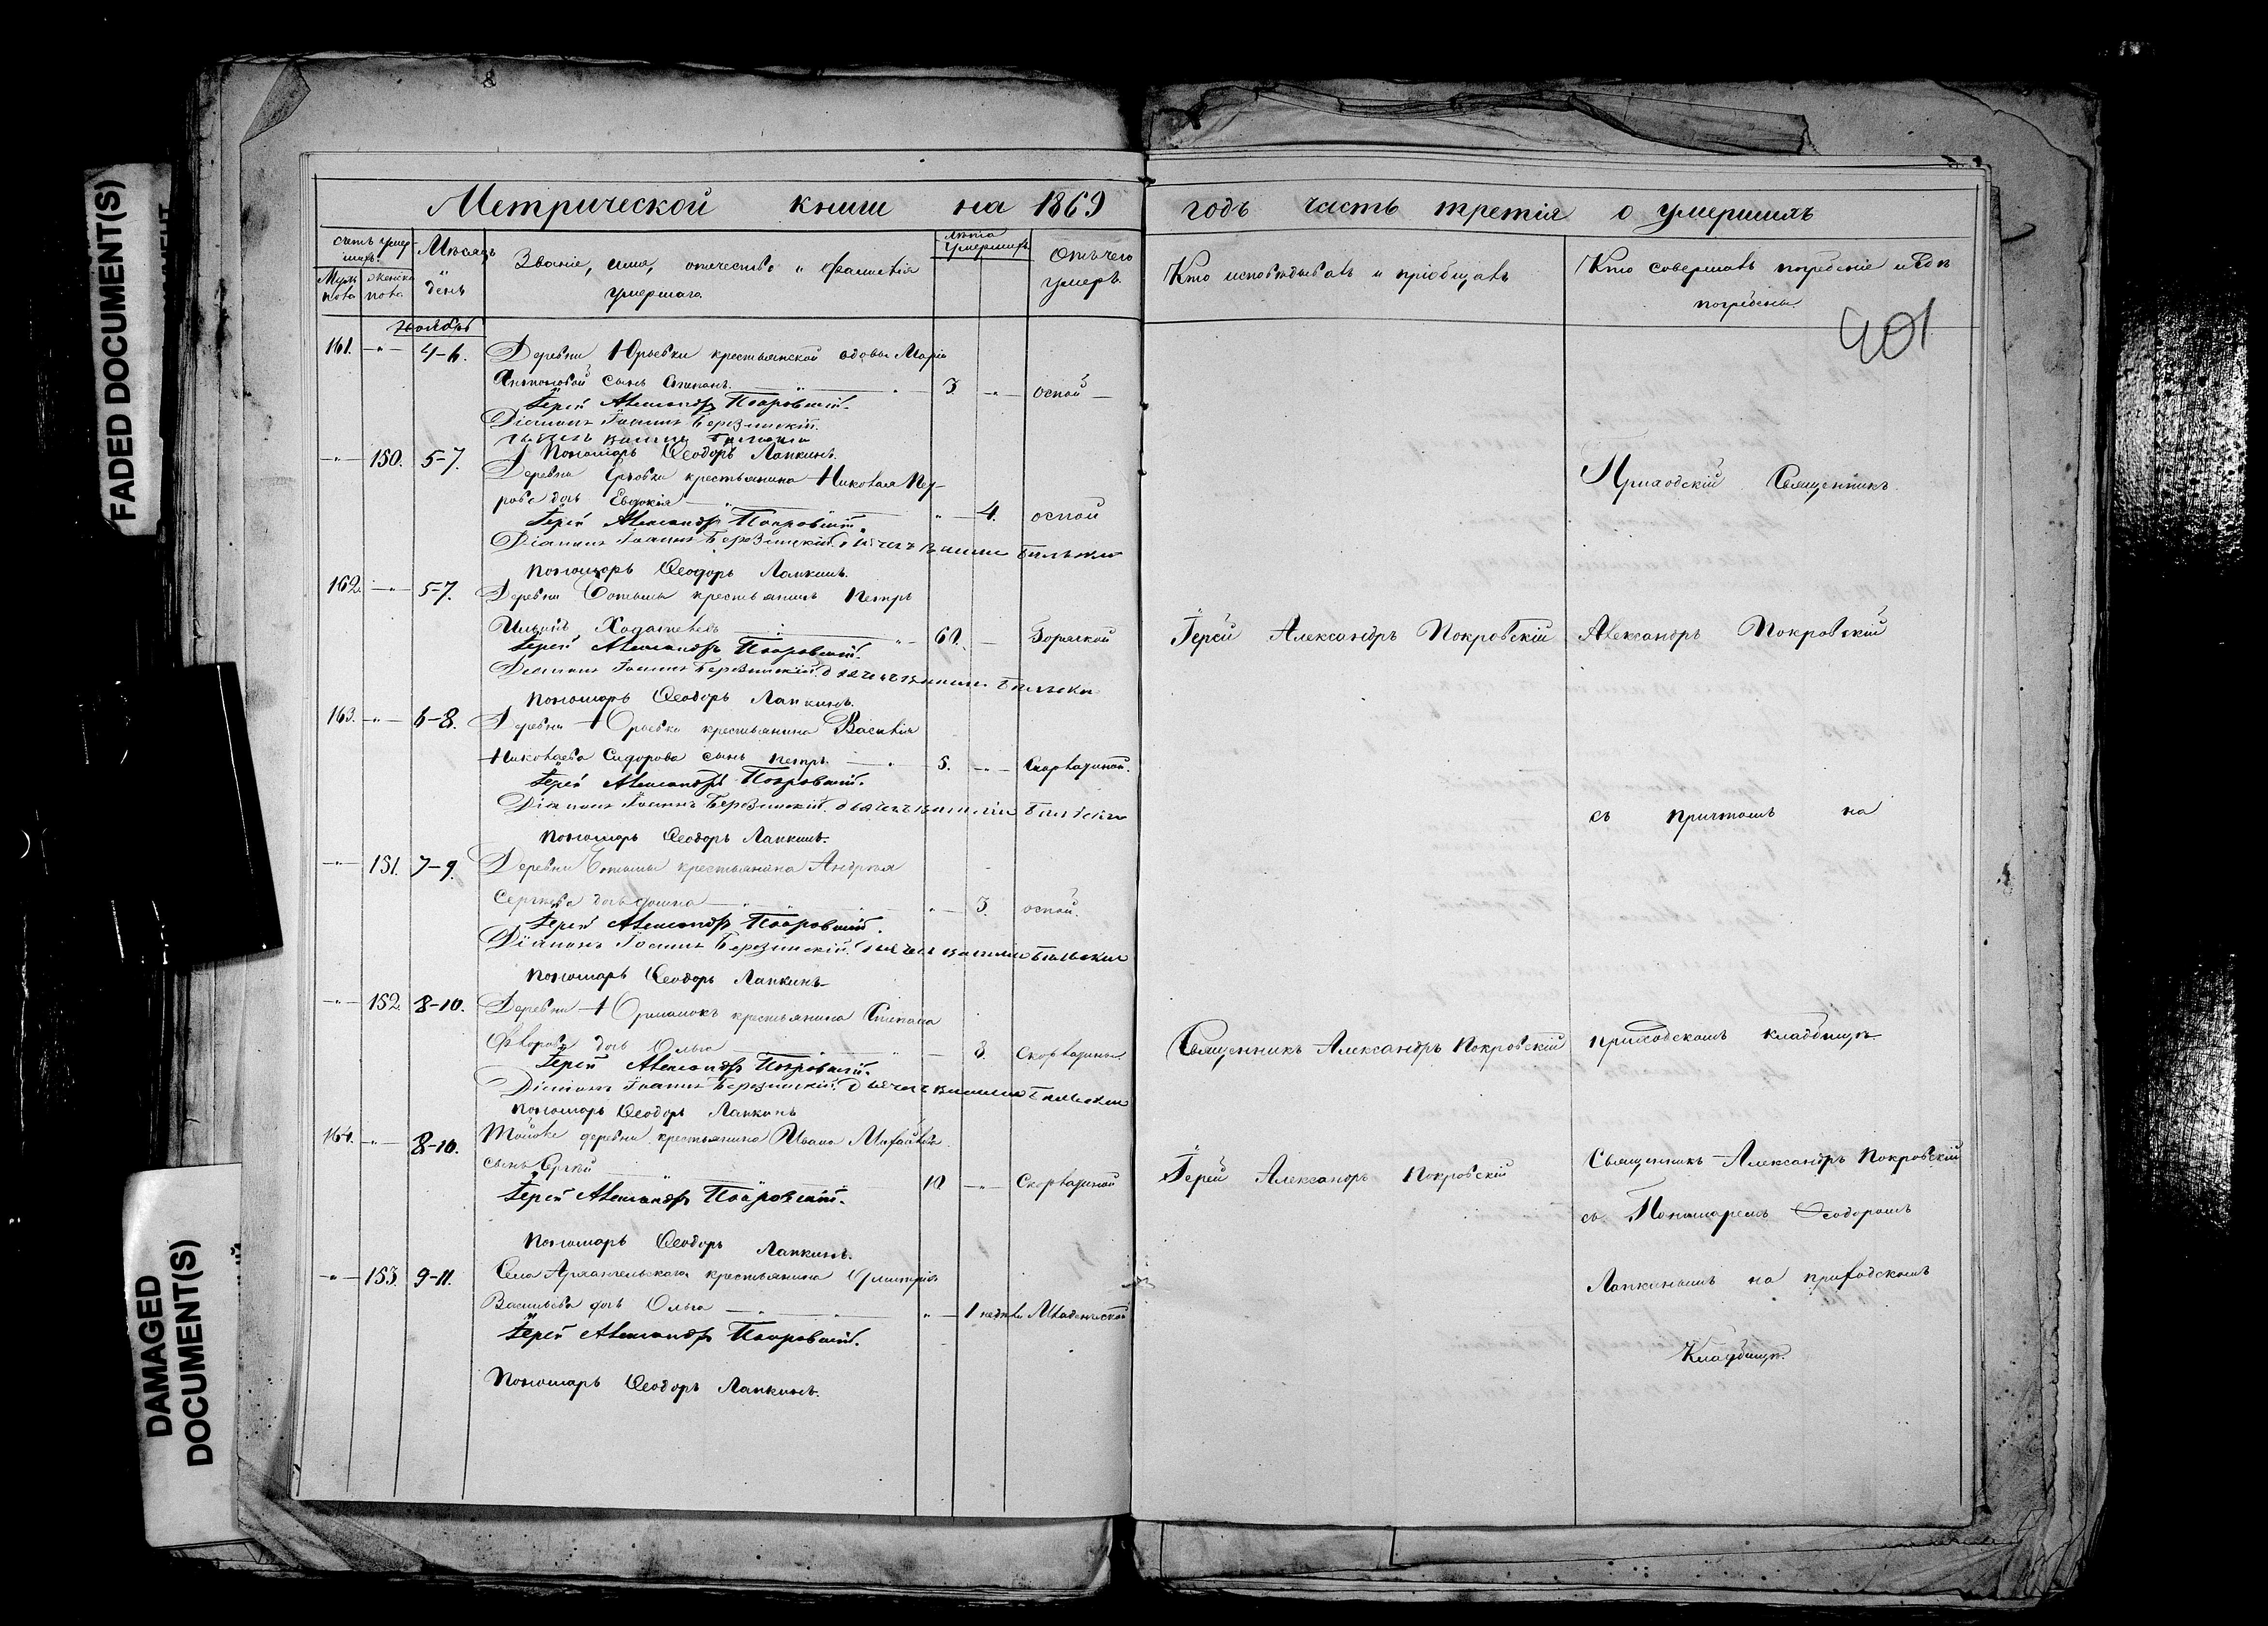 FADED DOCUMENT(S)
DAMAGED
DOCUMENT(S)
Метрической книги на 1869
счетъ умер-
шихъ
Мужс
пола
женска
пола
Мѣсяцъ
и
день
Званіе, имя, отчество и фамилія
умершаго.
лѣта
умершихъ
Отъ чего
умеръ.
Ноября
161. -"- 4-6. Деревни Юрьевки крестьянской вдовы Маріи
Антоновой сынъ Степанъ. 3. -"- оспой
Іерей Александръ Покровскій.
Діаконъ Іоаннъ Березинскій.
Пономарь Ѳеодоръ Лапкинъ.
-"- 150. 5-7. Деревни крестьянина Николая Пет-
рова дочь Евдокія " 4. оспой
Іерей Александръ Покровскій.
Діаконъ Іоаннъ Березинскій.
Пономарь Ѳеодоръ Лапкинъ.
162. -"- 5-7. Деревни крестьянинъ Петръ
Ильинъ 60. - Горячкой
Іерей Александръ Покровскій.
Діаконъ Іоаннъ Березинскій.
Пономарь Ѳеодоръ Лапкинъ.
163. -"- 6-8. Деревни Юрьевки крестьянина Василія
Николаева Сидорова сынъ Петръ. 5. -"- Скорлатиной.
Іерей Александръ Покровскій.
Діаконъ Іоаннъ Березинскій.
Пономарь Ѳеодоръ Лапкинъ.
-"- 151. 7-9. Деревни крестьянина Андрея
Сергѣева дочь " 3. оспой.
Іерей Александръ Покровскій.
Діаконъ Іоаннъ Березинскій.
Пономарь Ѳеодоръ Лапкинъ
-"- 152. 8-10. Деревни крестьянина Степана
дочь Ольга " 3. Скорлатиной
Іерей Александръ Покровскій.
Діаконъ Іоаннъ Березинскій.
Пономарь Ѳеодоръ Лапкинъ
164. -"- 8-10. деревни крестьянина Ивана Михайлова
сынъ Сергѣй 10 -"- Скорлатиной
Іерей Александръ Покровскій.
Пономарь Ѳеодоръ Лапкинъ.
-"- 153. 9-11. Села Архангельскаго крестьянина Димитрія
Васильева дочь Ольга " 1 недѣли Младенческой
Іерей Александръ Покровскій.
Пономарь Ѳеодоръ Лапкинъ.
годъ часть третія о умершихъ
Кто исповѣдывалъ и пріобщалъ
Кто совершалъ погребеніе и гдѣ
погребены.
401
Приходскій Священникъ
Іерей Александръ Покровскій
Александръ Покровскій
съ причтомъ на
Священникъ Александръ Покровскій
приходскомъ кладбищѣ
Іерей Александръ Покровскій
Священникъ Александръ Покровскій
съ Пономаремъ Ѳеодоромъ
Лапкинымъ на приходскомъ
Кладбищѣ.